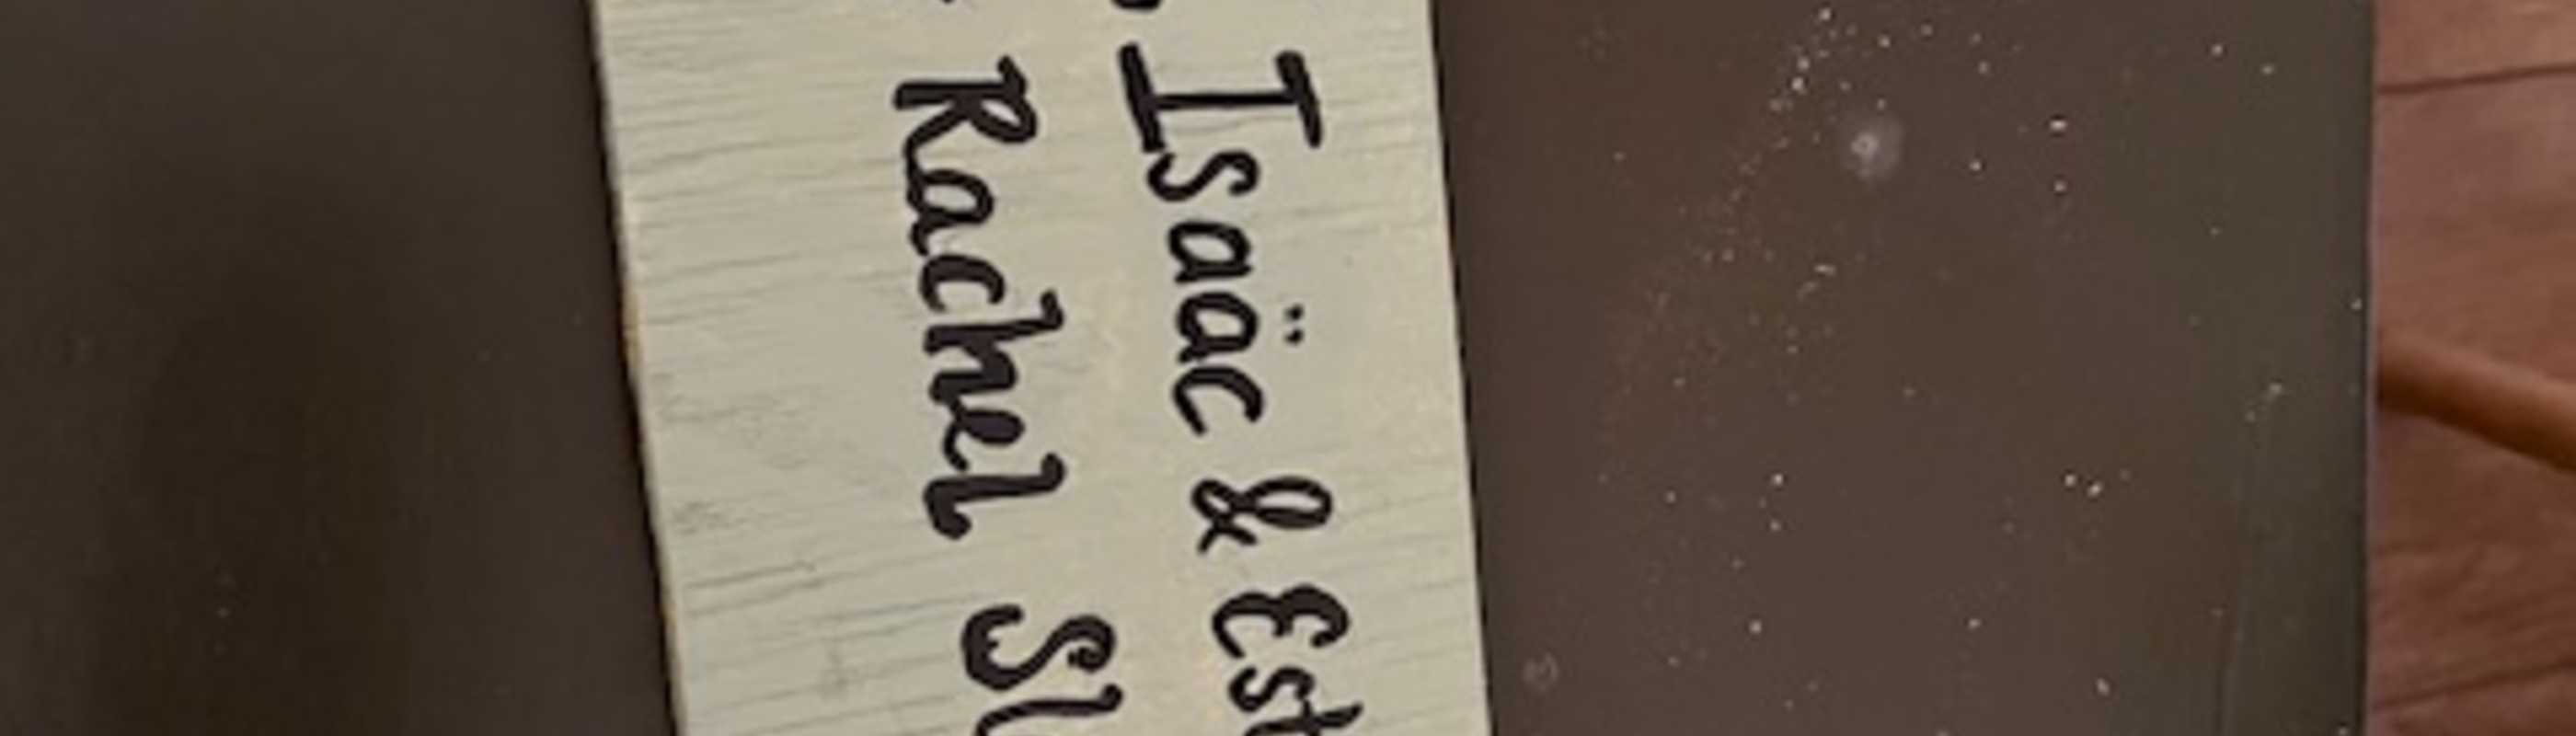 Isaäc & Est
Rachel Sl